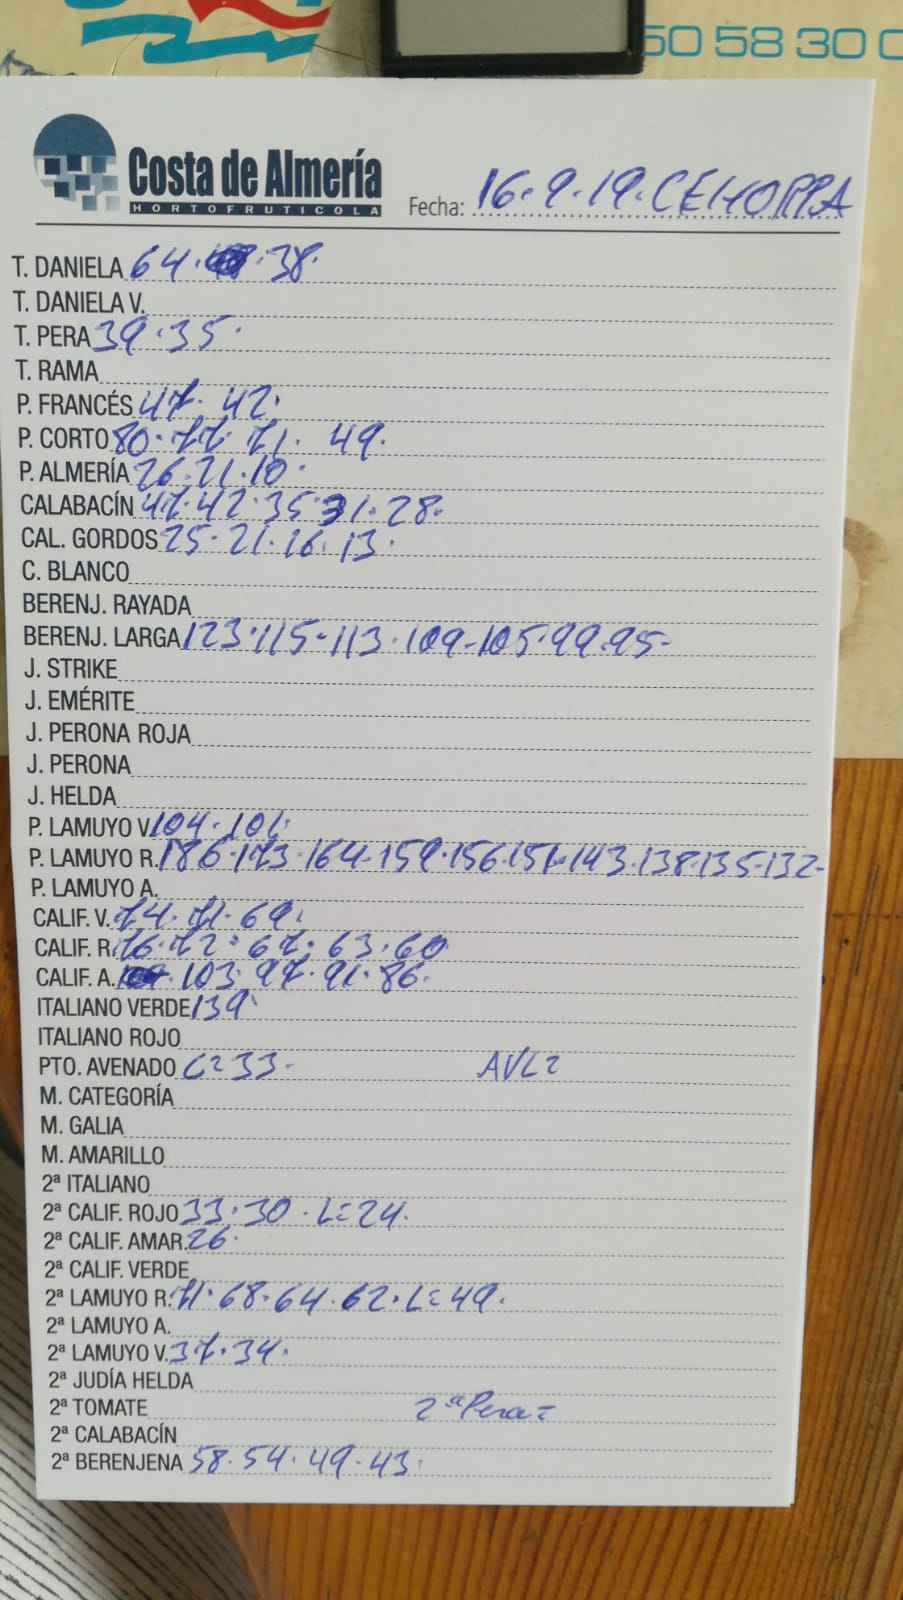 50 58 30 0
Costa de Almería
HORTOFRUTICOLA
Fecha: 16.9.19. CEHORPA
T. DANIELA 64. 38.
T. DANIELA V.
T. PERA 39.35.
T. RAMA
P. FRANCÉS 47. 42.
P. CORTO 80. 77. 71. 49.
P. ALMERÍA 26.21.10.
CALABACÍN 47.42.35.31.28.
CAL. GORDOS 25.21.16.13.
C. BLANCO
BERENJ. RAYADA
BERENJ. LARGA 123.115-113.109-105.99.95-
J. STRIKE
J. EMÉRITE
J. PERONA ROJA
J. PERONA
J. HELDA
P. LAMUYO V. 104.101.
P. LAMUYO R. 186.173.164-159.156.151-143.138.135-132-
P. LAMUYO A.
CALIF. V. 74. 71. 69.
CALIF. R. 76.72.67.63.60
CALIF. A. 103.97.91.86.
ITALIANO VERDE 139.
ITALIANO ROJO
PTO. AVENADO C=33- AVL=
M. CATEGORÍA
M. GALIA
M. AMARILLO
2ª ITALIANO
2ª CALIF. ROJO 33.30. L=24.
2ª CALIF. AMAR. 26.
2ª CALIF. VERDE
2ª LAMUYO R. 71.68.64.62.L=49.
2ª LAMUYO A.
2ª LAMUYO V. 37.34.
2ª JUDÍA HELDA
2ª TOMATE 2ª Pera=
2ª CALABACÍN
2ª BERENJENA 58.54.49.43.